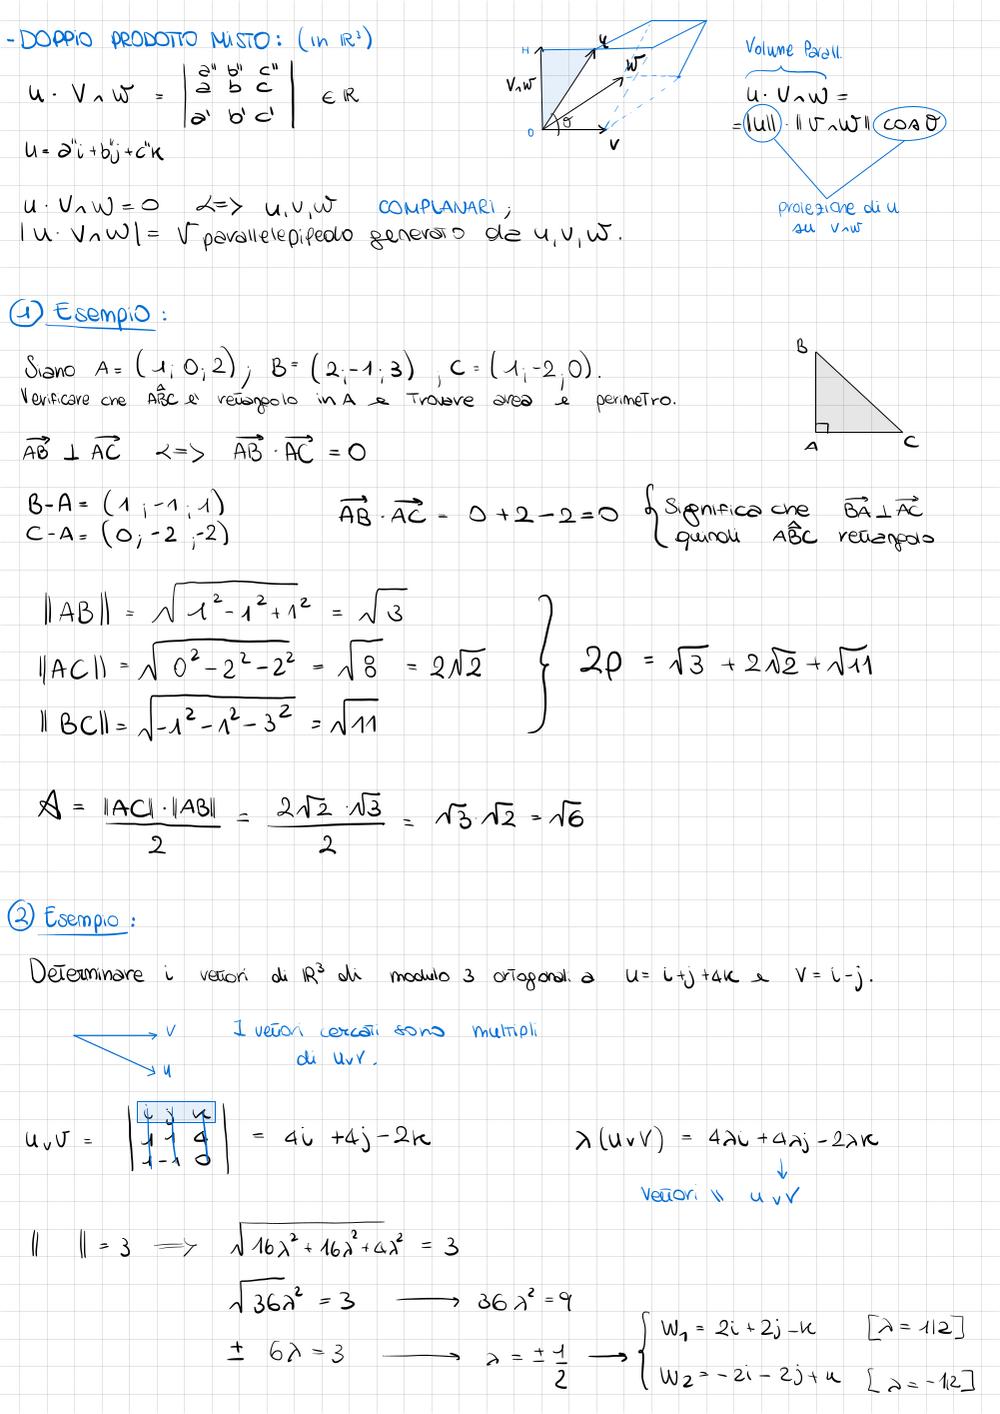 - DOPPIO PRODOTTO MISTO: (in ℝ³)
u · v∧w = | a'' b'' c'' | ∈ ℝ
a b c
a' b' c'
u = a''i + b''j + c''k
u · v∧w = 0 <=> u, v, w COMPLANARI;
|u · v∧w| = V parallelepipedo generato da u, v, w.
H u w
v∧w
O θ v
Volume Parall.
u · v∧w =
= ||u|| · ||v∧w|| cos θ
proiezione di u
su v∧w
① Esempio:
Siano A = (1; 0; 2); B = (2; -1; 3), C = (1; -2, 0).
Verificare che AB̂C e' rettangolo in A e trovare area e perimetro.
B
A C
AB ⊥ AC <=> AB · AC = 0
B-A = (1; -1; 1)
C-A = (0; -2; -2)
AB · AC = 0 + 2 - 2 = 0
{ Significa che BA ⊥ AC
quindi AB̂C rettangolo
||AB|| = √(1² - 1² + 1²) = √3
||AC|| = √(0² - 2² - 2²) = √8 = 2√2
||BC|| = √(-1² - 1² - 3²) = √11
} 2p = √3 + 2√2 + √11
A = ||AC|| · ||AB|| / 2 = 2√2 · √3 / 2 = √3 · √2 = √6
② Esempio:
Determinare i vettori di ℝ³ di modulo 3 ortogonali a u = i+j+4k e v = i-j.
v
u
I vettori cercati sono multipli
di u∨v.
u∨v = | i j k | = 4i + 4j - 2k
1 1 4
1 -1 0
λ(u∨v) = 4λi + 4λj - 2λk
↓
Vettori \\ u∨v
|| || = 3 => √(16λ² + 16λ² + 4λ²) = 3
√(36λ²) = 3 → 36λ² = 9
± 6λ = 3 → λ = ± 1/2 →
{ W₁ = 2i + 2j - k [λ = 1/2]
W₂ = -2i - 2j + k [λ = -1/2]